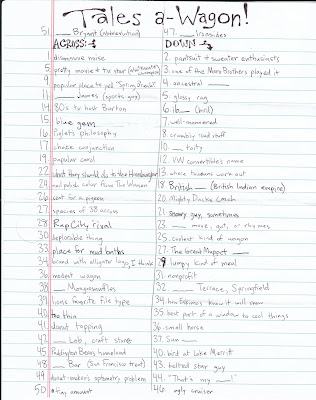 Tales a-Wagon!
51. ___ Bryant (Abbreviation)
ACROSS:
disapprove noise
5. pretty movie + tv star
9. popular place to yell "Spring Break!"
___ James (sports guy)
14. 80's tv host Burton
15. blue gem
16. Piglet's philosophy
17. choice conjunction
19. popular carol
22. what they should do to the Hamburglar
24. nail polish color from The Woman
26. coat for a pigeon
27. species of 38 across
28. Rap City rival
30. deplorable thing
33. place for mud baths
34. brand with alligator logo, I think
36. modest wagon
38. ___ Mongosnuffles
39. lions favorite file type
40. too thin
41. donut topping
42. ___ Lob, craft store
45. Paddington Bears homeland
48. ___ Bar (San Francisco treat)
49. donut-maker's optometry problem
50. tiny amount
47. ___ Ironsides
DOWN
2. pantsuit + sweater enthusiasts
3. one of the Marx Brothers played it
4. ancestral ___
5. glossy rag
6. ib__ (bird)
7. well-mannered
8. crumbly road stuff
10. ___ toity
12. VW convertible's name
13. where tacians work out
18. British ___ (British Indian empire)
20. Mighty Ducks coach
21. Snowy guy, sometimes
23. ___ more, got, or rhymes
25. coolest kind of wagon
27. The Great Muppet ___
29. lumpy kind of meal
31. nonprofit
32. ___ Terrace, Springfield
34. how Eskimos know it will snow
35. best part of a window to cool things
36. small horse
37. Sun ___
40. bird at Lake Merritt
43. belted star guy
44. "That's my ___!"
46. ugly cruiser